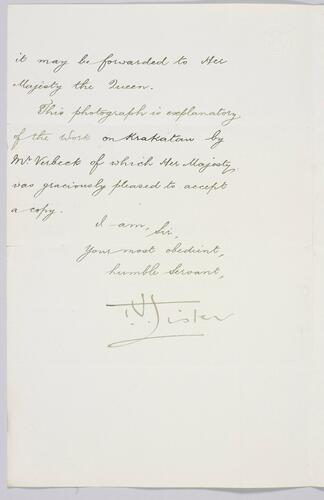 it may be forwarded to Her
Majesty the Queen.
This photograph is explanatory
of the work on Krakatau by
Mr Verbeek of which Her Majesty
was graciously pleased to accept
a copy.
I am, Sir,
Your most obedient,
humble Servant,